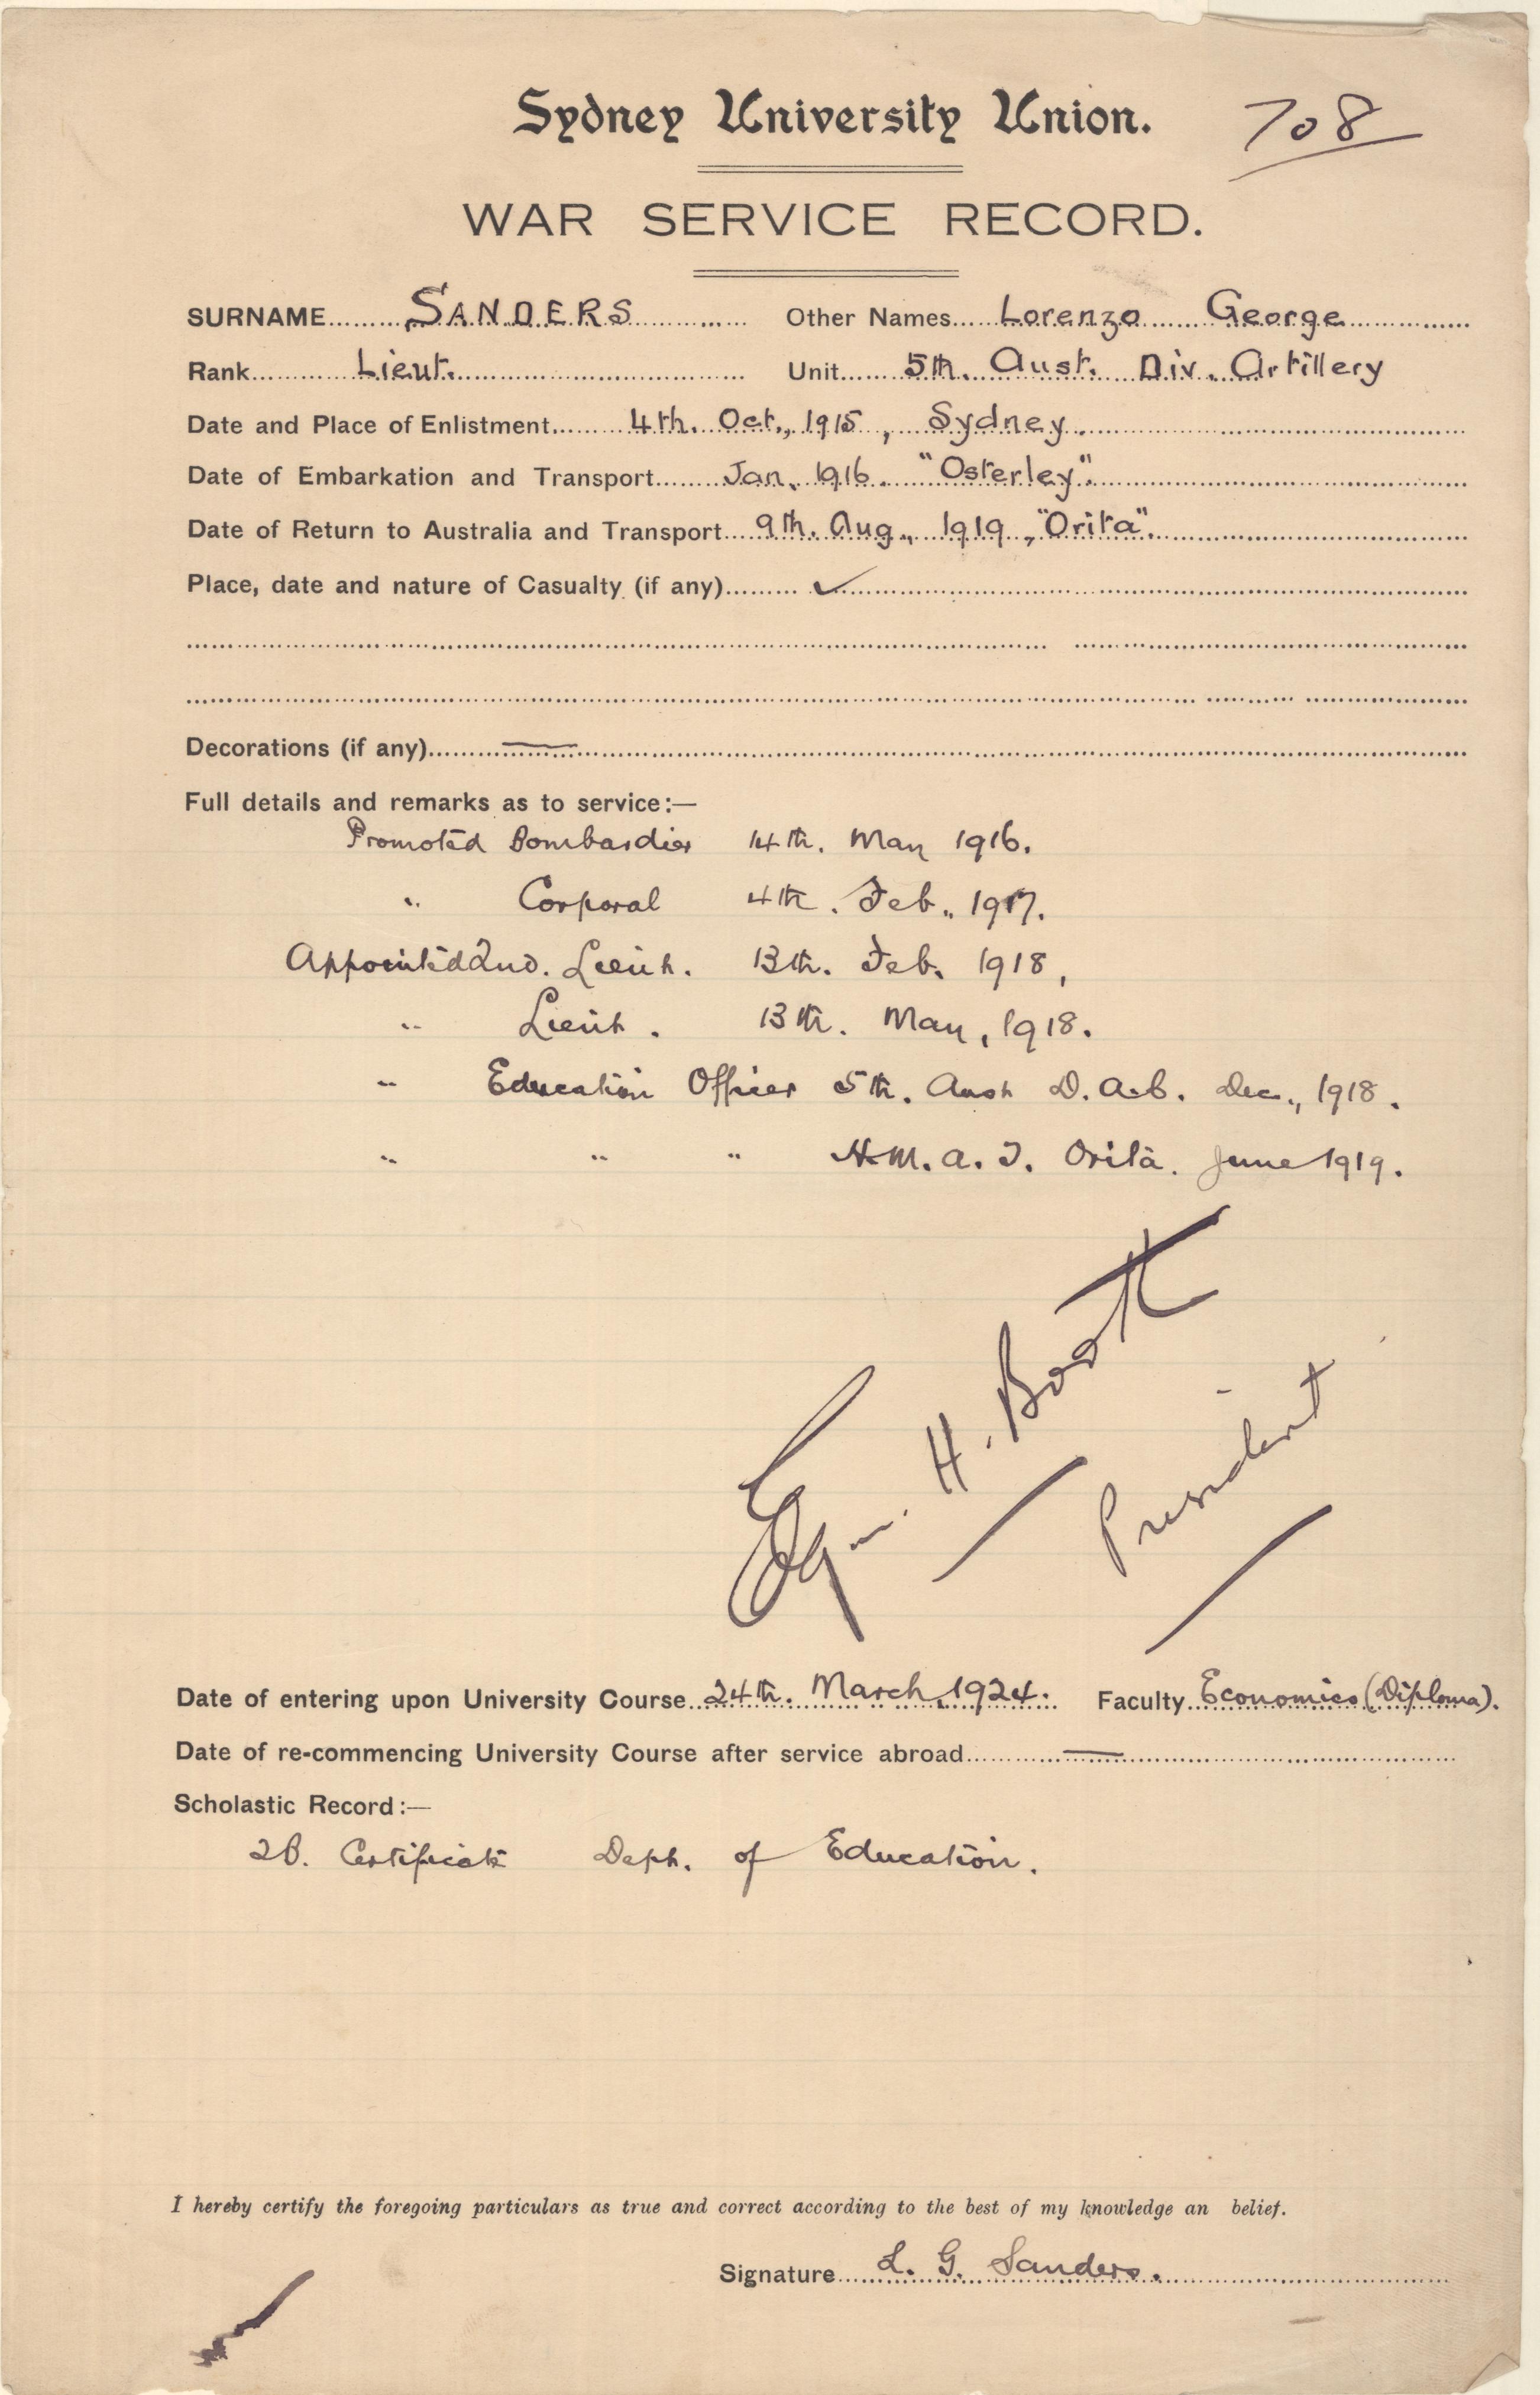 Sydney University Union. 708
WAR SERVICE RECORD.
SURNAME SANDERS Other Names Lorenzo George
Rank Lieut. Unit 5th. Aust. Div. Artillery
Date and Place of Enlistment 4th. Oct., 1915, Sydney.
Date of Embarkation and Transport Jan. 1916. "Osterley".
Date of Return to Australia and Transport 9th. Aug., 1919, "Orita".
Place, date and nature of Casualty (if any) ✓
Decorations (if any) —
Full details and remarks as to service:—
Promoted Bombardier 14th. May 1916.
" Corporal 4th. Feb., 1917.
Appointed 2nd. Lieut. 13th. Feb. 1918,
" Lieut. 13th. May, 1918.
" Education Officer 5th. Aust D.A.C. Dec., 1918.
" " " H.M.A.T. Orita. June 1919.
H. Booth
President
Date of entering upon University Course 24th. March, 1924. Faculty Economics (Diploma).
Date of re-commencing University Course after service abroad —
Scholastic Record:—
2B. Certificate Dept. of Education.
I hereby certify the foregoing particulars as true and correct according to the best of my knowledge an belief.
Signature L. G. Sanders.